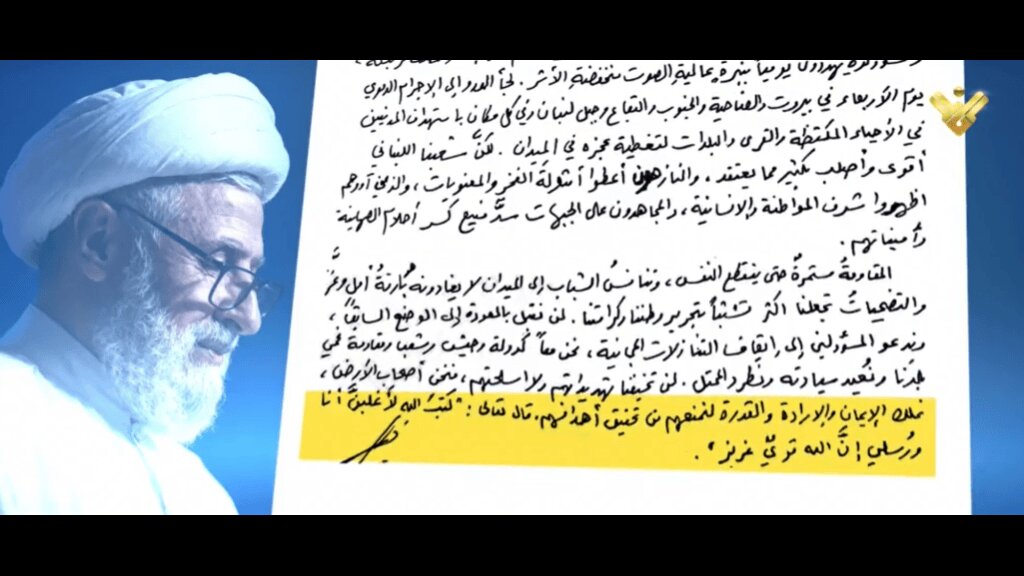 يوم الأربعاء في بيروت والضاحية والجنوب والبقاع وجبل لبنان وفي كل مكان باستهداف المدنيين
في الأحياء المكتظة والقرى والبلدات لتغطية عجزه في الميدان. لكنَّ شعبنا اللبناني
أقوى وأصلب بكثير مما يعتقد، والنازحون أعطوا أمثولة الفخر والمعنويات، والذين آووهم
أظهروا شرف المواطنة والإنسانية، والمجاهدون على الجبهات سدٌّ منيع كسر أحلام الصهاينة
وأمنياتهم.
المقاومةُ مستمرةٌ حتى ينقطع النفس، وتنافسُ الشباب إلى الميدان لا يغادرونه
والتضحياتُ تجعلنا أكثر تشبثاً بتحرير وطننا وكرامتنا. لن نقبل بالعودة إلى الوضع السابق،
وندعو المسؤولين إلى إيقاف التنازلات المجانية، نحن معاً كدولة وجيش وشعب ومقاومة نحمي
بلدنا ونُعيد سيادته ونطرد المحتل. لن تخيفنا تهديداتهم ولا أسلحتهم، فنحن أصحاب الأرض،
نملك الإيمان والإرادة والقدرة لنمنعهم من تحقيق أهدافهم. قال تعالى: "كَتَبَ اللهُ لأغلبنَّ أنا
ورُسلي إنَّ الله قويٌّ عزيز".